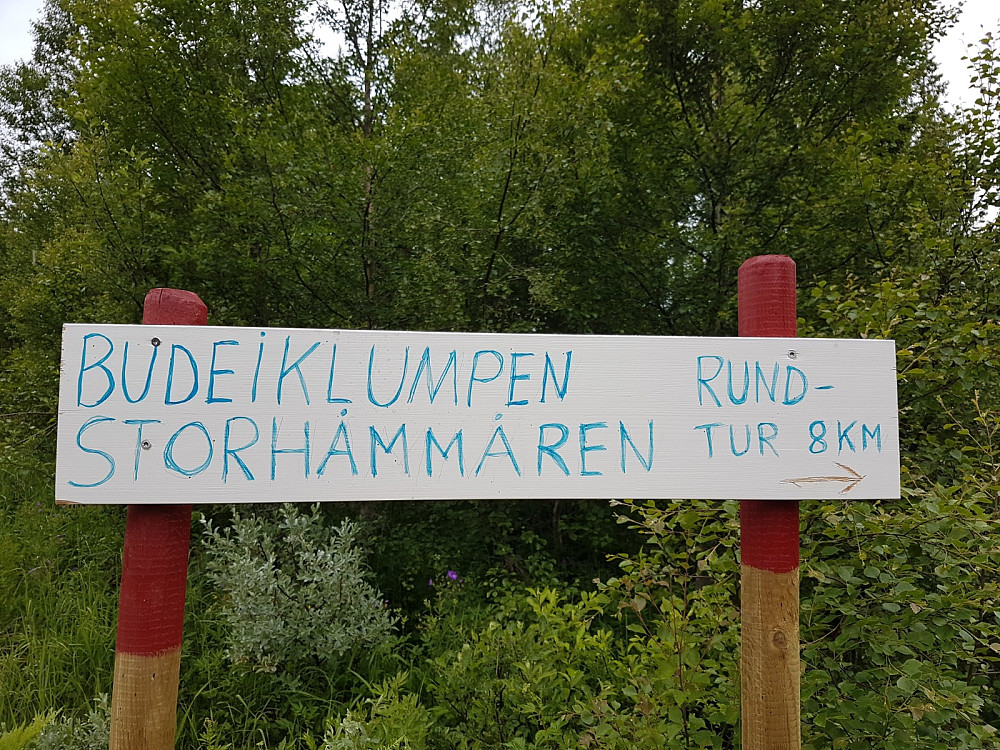 BUDEIKLUMPEN
STORHÅMMÅREN
RUND-
TUR 8KM